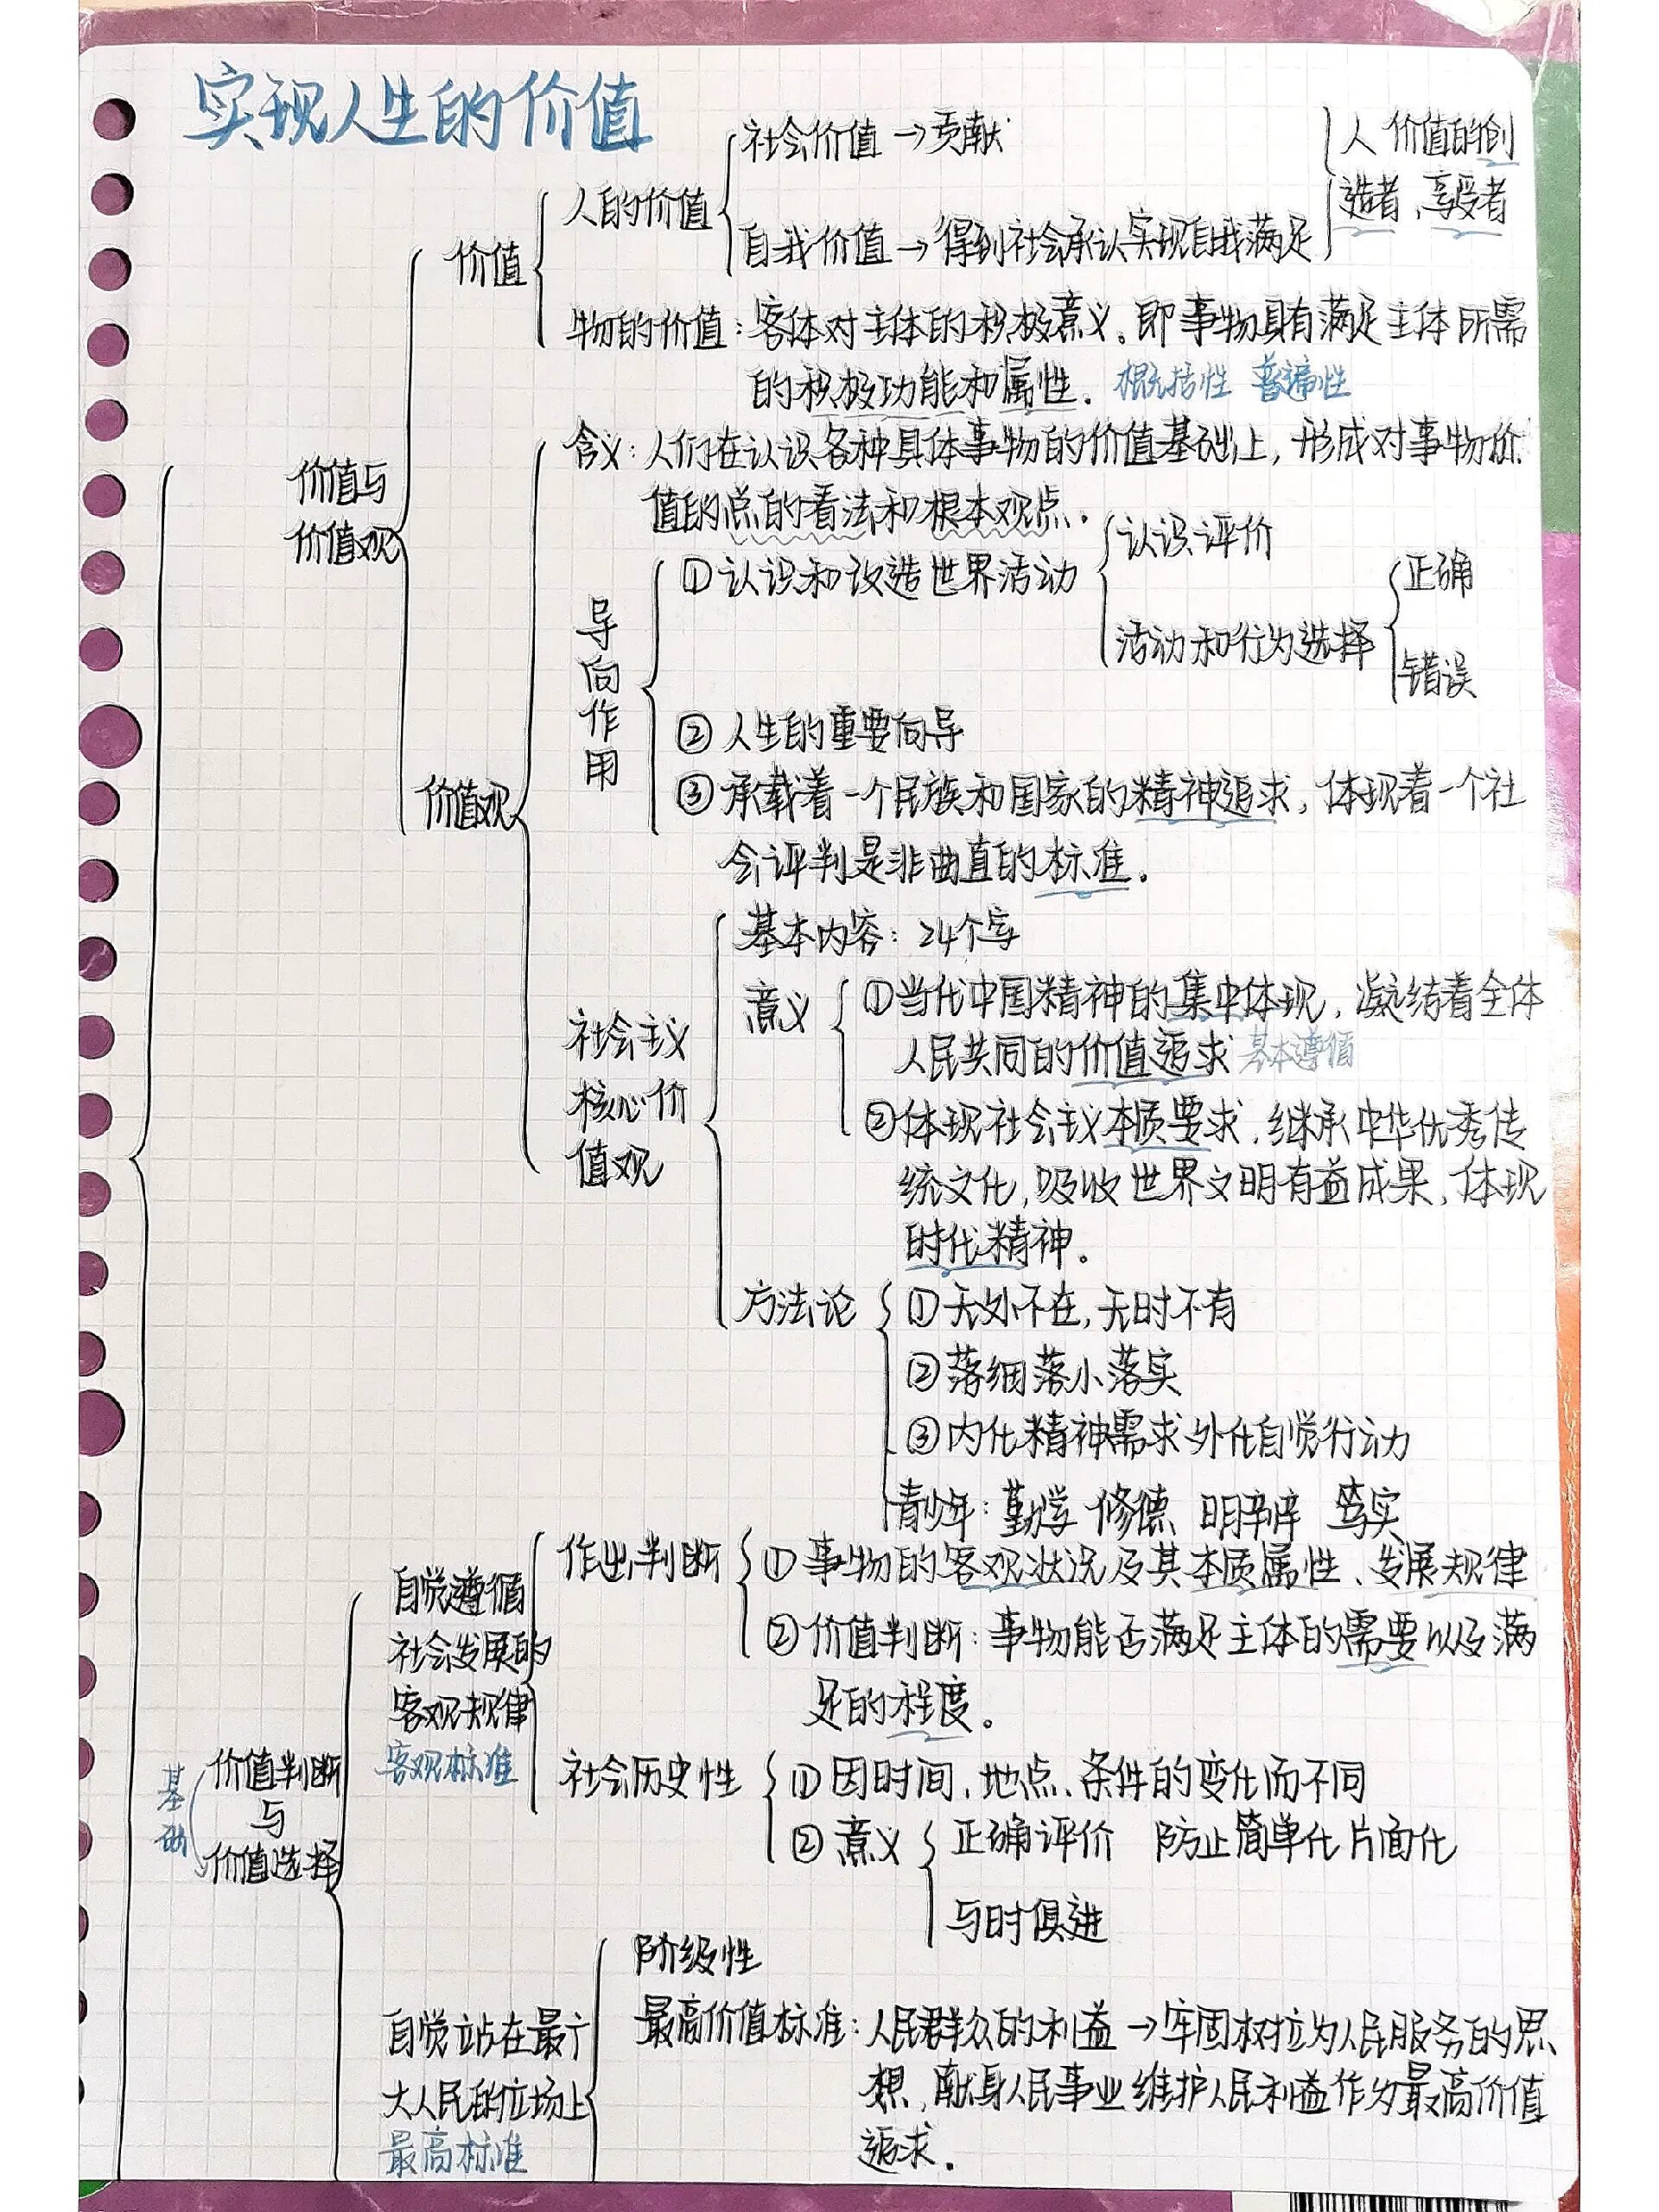 实现人生的价值
社会价值→贡献
人 价值的创
造者、享受者
人的价值
自我价值→得到社会承认实现自我满足
价值
物的价值：客体对主体的积极意义。即事物具有满足主体所需
的积极功能和属性。 概括性 普遍性
价值与
价值观
含义：人们在认识各种具体事物的价值基础上，形成对事物价
值的总的看法和根本观点。
导向作用
①认识和改造世界活动
认识评价
活动和行为选择
正确
错误
②人生的重要向导
③承载着一个民族和国家的精神追求，体现着一个社
会评判是非曲直的标准。
价值观
社会主义
核心价
值观
基本内容：24个字
意义
①当代中国精神的集中体现，凝结着全体
人民共同的价值追求 基本遵循
②体现社会主义本质要求、继承中华优秀传
统文化，吸收世界文明有益成果、体现
时代精神。
方法论
①无处不在，无时不有
②落细落小落实
③内化精神需求 外化自觉行动
青少年：勤学 修德 明辨 笃实
自觉遵循
社会发展的
客观规律
客观标准
作出判断
①事物的客观状况及其本质属性、发展规律
②价值判断：事物能否满足主体的需要以及满
足的程度。
基础
价值判断
与
价值选择
社会历史性
①因时间、地点、条件的变化而不同
②意义
正确评价 防止简单化片面化
与时俱进
自觉站在最广
大人民的立场上
最高标准
阶级性
最高价值标准：人民群众的利益→牢固树立为人民服务的思
想，献身人民事业维护人民利益作为最高价值
追求。